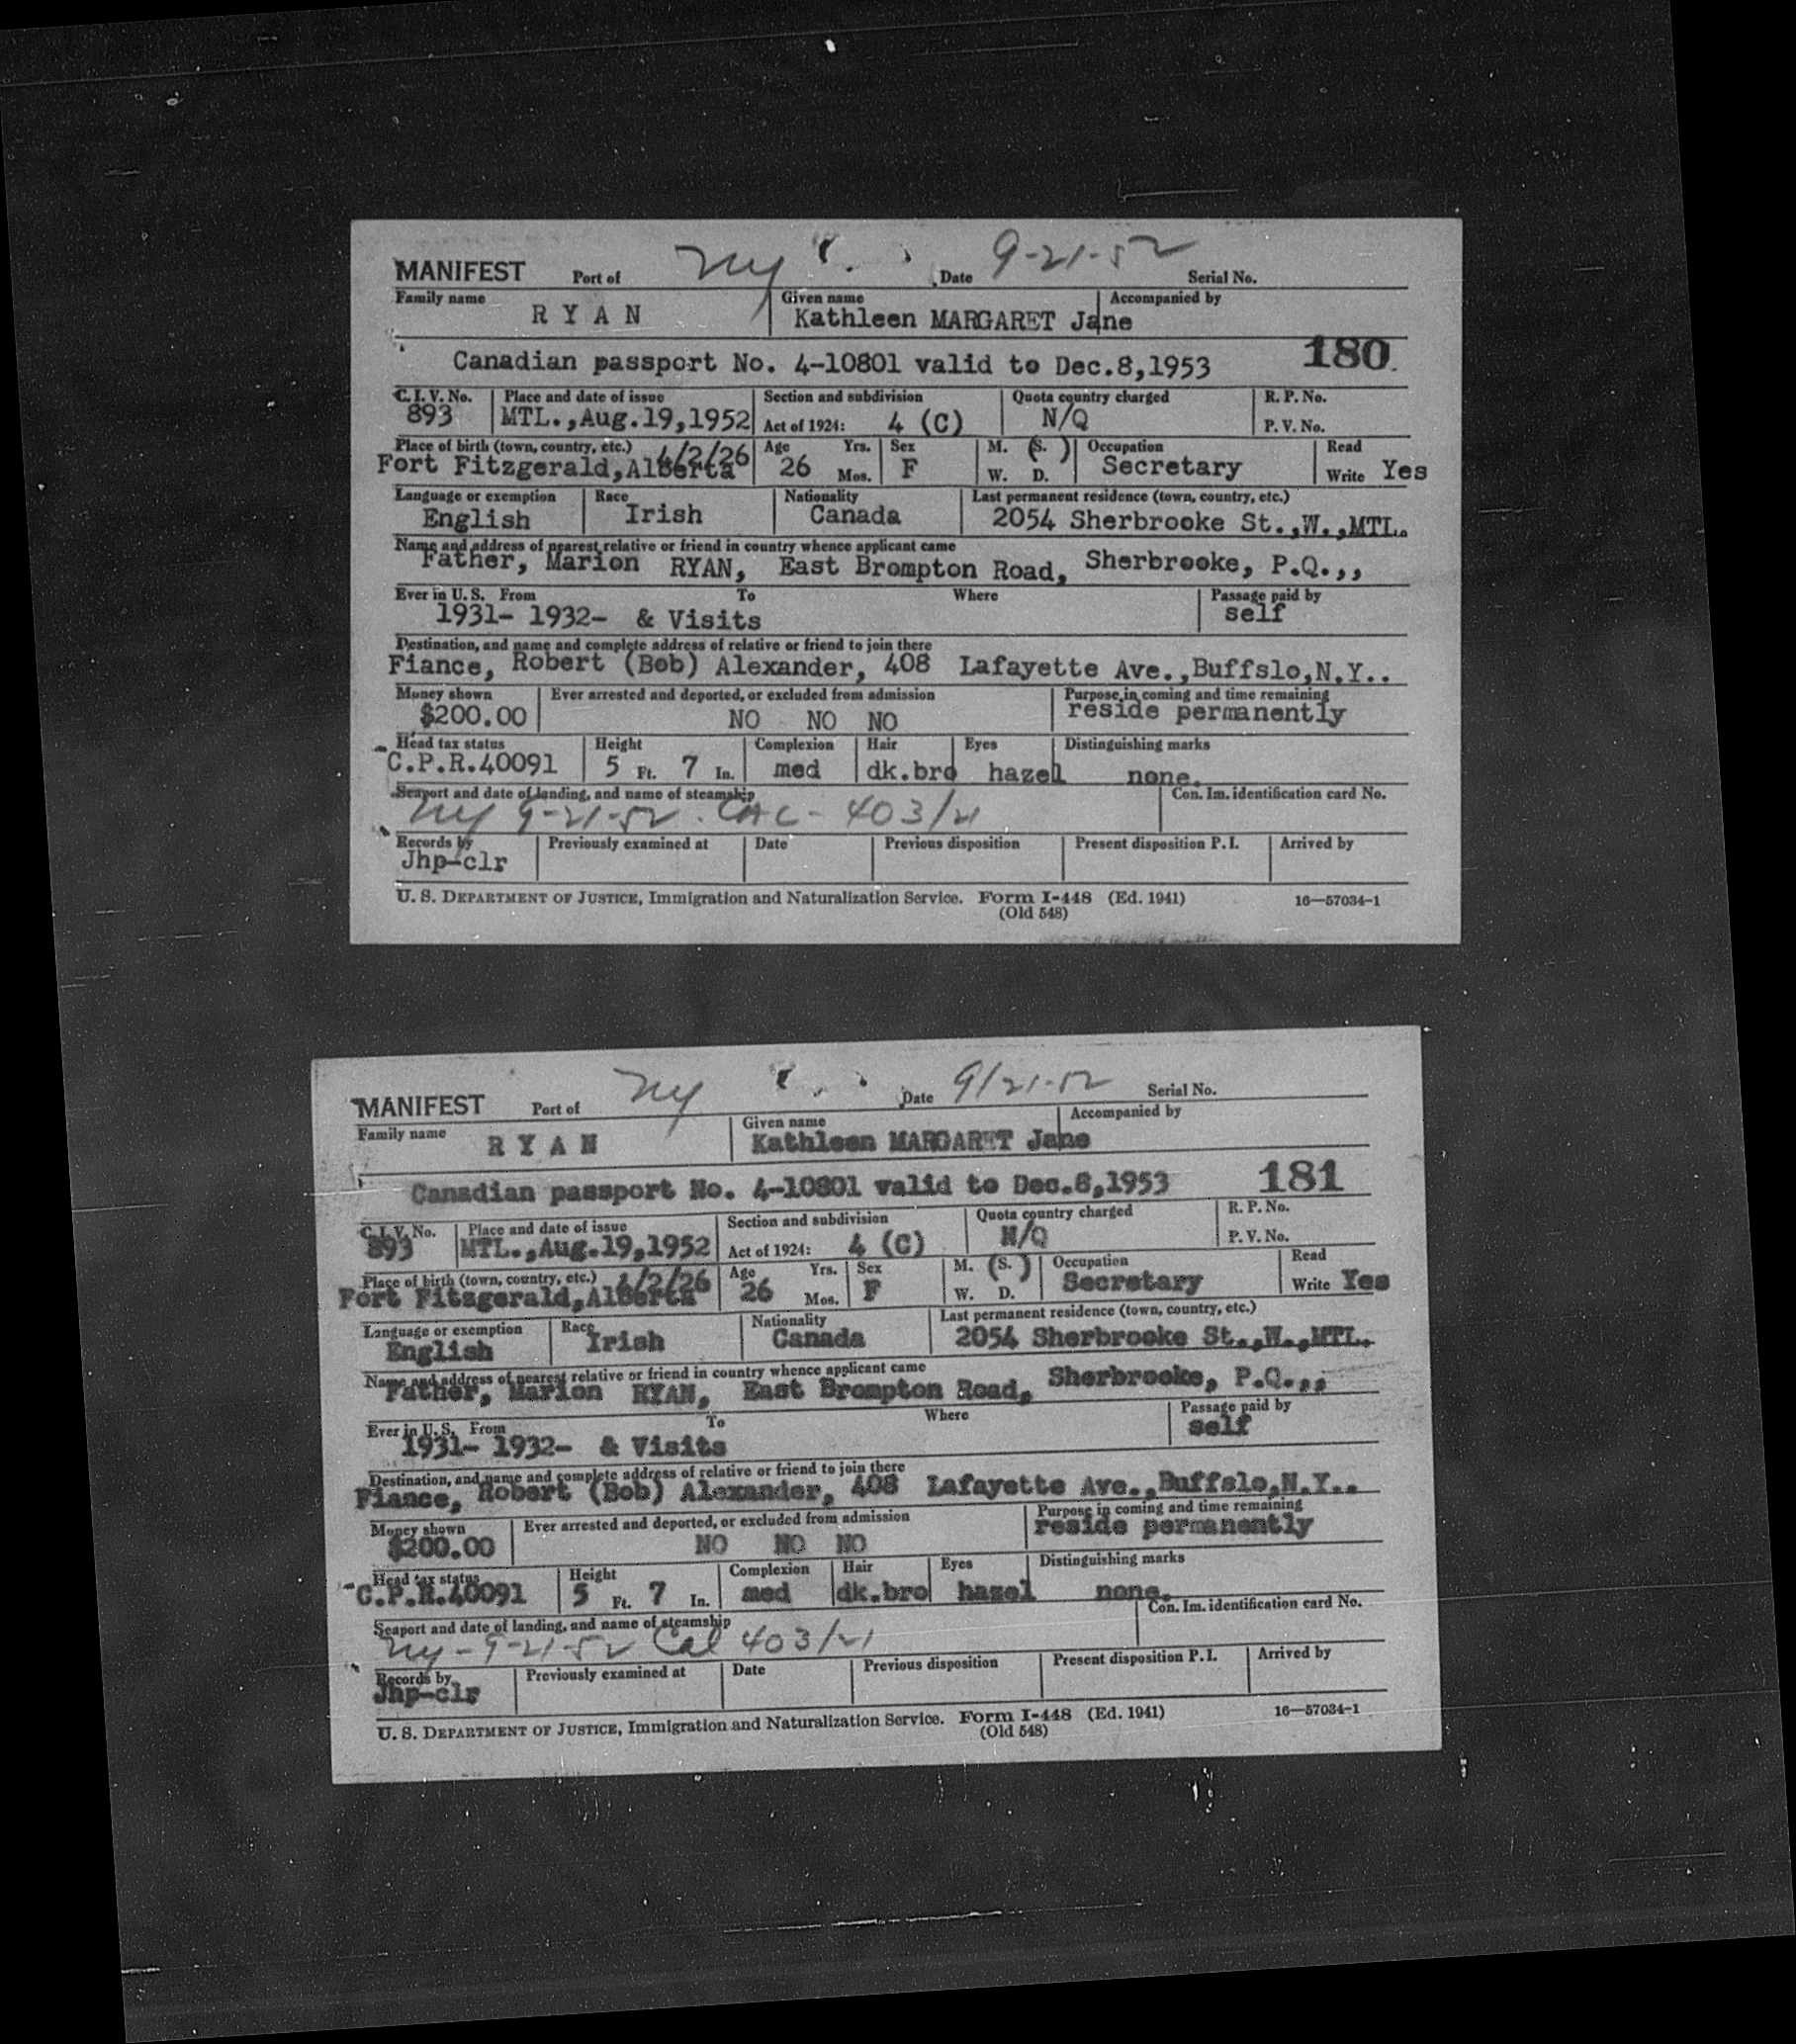 MANIFEST Port of Ny Date 9-21-52 Serial No.
Family name Given name Accompanied by
RYAN Kathleen MARGARET Jane
Canadian passport No. 4-10801 valid to Dec.8,1953 180
C.I.V. No. Place and date of issue Section and subdivision Quota country charged R. P. No.
893 MTL.,Aug.19,1952 Act of 1924: 4 (C) N/Q P. V. No.
Place of birth (town, country, etc.) 4/2/26 Age Yrs. Sex M. (S.) Occupation Read
Fort Fitzgerald,Alberta 26 Mos. F W. D. Secretary Write Yes
Language or exemption Race Nationality Last permanent residence (town, country, etc.)
English Irish Canada 2054 Sherbrooke St.,W.,MTL.
Name and address of nearest relative or friend in country whence applicant came
Father, Marion RYAN, East Brompton Road, Sherbrooke, P.Q.,,
Ever in U. S. From To Where Passage paid by
1931- 1932- & Visits self
Destination, and name and complete address of relative or friend to join there
Fiance, Robert (Bob) Alexander, 408 Lafayette Ave.,Buffslo,N.Y..
Money shown Ever arrested and deported, or excluded from admission Purpose in coming and time remaining
$200.00 NO NO NO reside permanently
Head tax status Height Complexion Hair Eyes Distinguishing marks
C.P.R.40091 5 Ft. 7 In. med dk.bro hazel none.
Seaport and date of landing, and name of steamship Con. Im. identification card No.
Ny 9-21-52. CAL - 403/21
Records by Previously examined at Date Previous disposition Present disposition P. I. Arrived by
Jhp-clr
U. S. DEPARTMENT OF JUSTICE, Immigration and Naturalization Service. Form I-448 (Ed. 1941) 16—57034-1
(Old 548)
MANIFEST Port of Ny Date 9/21-52 Serial No.
Family name Given name Accompanied by
RYAN Kathleen MARGARET Jane
Canadian passport No. 4-10801 valid to Dec.8,1953 181
C.I.V. No. Place and date of issue Section and subdivision Quota country charged R. P. No.
893 MTL.,Aug.19,1952 Act of 1924: 4 (C) N/Q P. V. No.
Place of birth (town, country, etc.) 4/2/26 Age Yrs. Sex M. (S.) Occupation Read
Fort Fitzgerald,Alberta 26 Mos. F W. D. Secretary Write Yes
Language or exemption Race Nationality Last permanent residence (town, country, etc.)
English Irish Canada 2054 Sherbrooke St.,W.,MTL.
Name and address of nearest relative or friend in country whence applicant came
Father, Marion RYAN, East Brompton Road, Sherbrooke, P.Q.,,
Ever in U. S. From To Where Passage paid by
1931- 1932- & Visits self
Destination, and name and complete address of relative or friend to join there
Fiance, Robert (Bob) Alexander, 408 Lafayette Ave.,Buffslo,N.Y..
Money shown Ever arrested and deported, or excluded from admission Purpose in coming and time remaining
$200.00 NO NO NO reside permanently
Head tax status Height Complexion Hair Eyes Distinguishing marks
C.P.R.40091 5 Ft. 7 In. med dk.bro hazel none.
Seaport and date of landing, and name of steamship Con. Im. identification card No.
Ny - 9-21-52 Cal 403/21
Records by Previously examined at Date Previous disposition Present disposition P. I. Arrived by
Jhp-clr
U. S. DEPARTMENT OF JUSTICE, Immigration and Naturalization Service. Form I-448 (Ed. 1941) 16—57034-1
(Old 548)